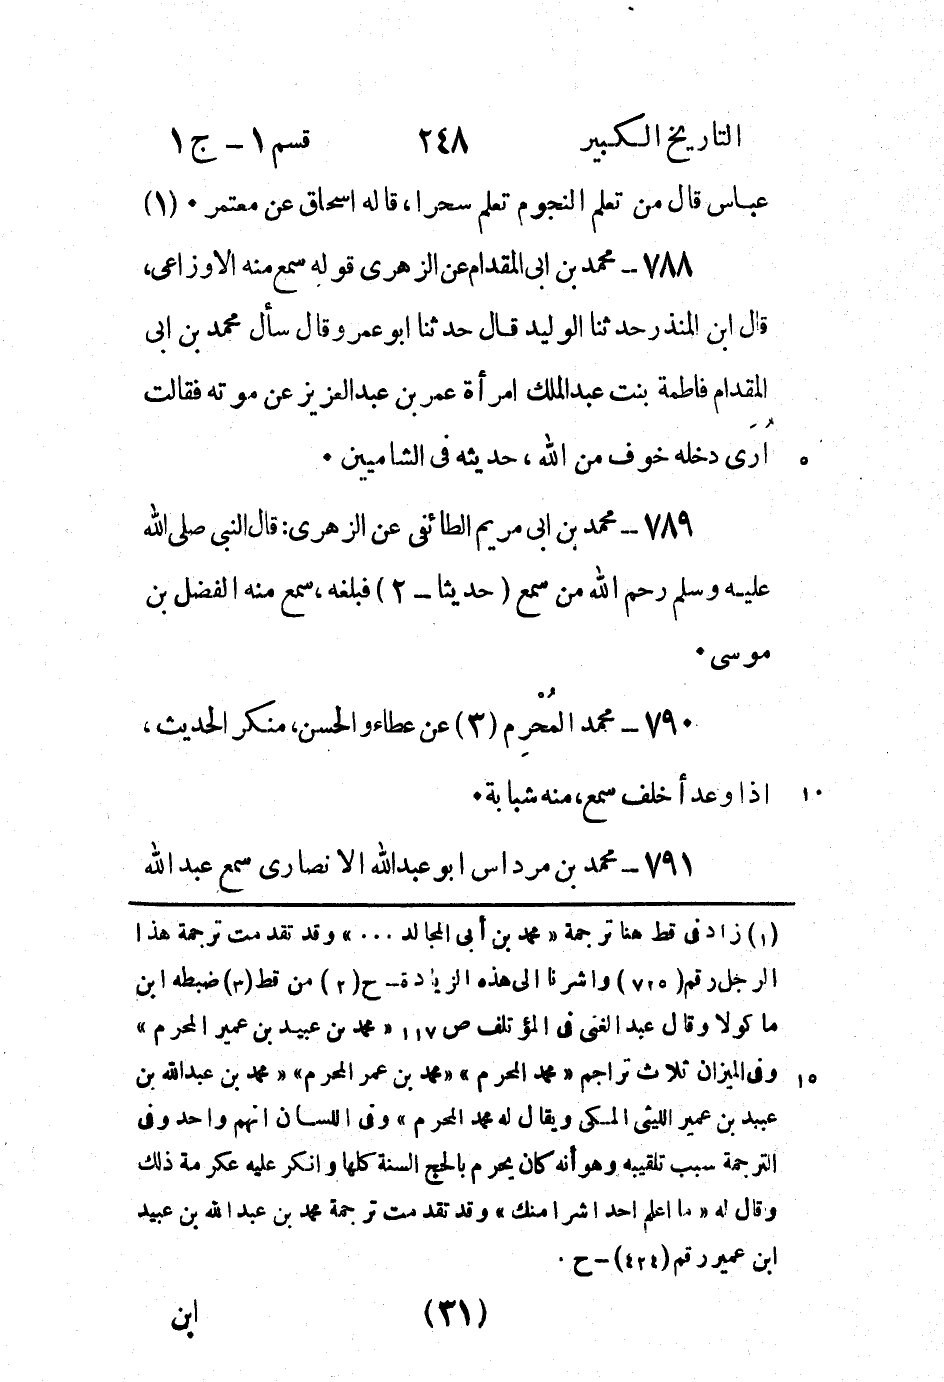 التاريخ الكبير ٢٤٨ قسم ١ - ج ١
عباس قال من تعلم النجوم تعلم سحرا، قاله اسحاق عن معتمر ٠ (١)
٧٨٨ - محمد بن ابى المقدام عن الزهرى قوله سمع منه الاوزاعى،
قال ابن المنذر حدثنا الوليد قال حدثنا ابو عمرو قال سأل محمد بن ابى
المقدام فاطمة بنت عبدالملك امرأة عمر بن عبدالعزيز عن موته فقالت
٥ اُرَى دخله خوف من الله، حديثه فى الشاميين ٠
٧٨٩ - محمد بن ابى مريم الطائفى عن الزهرى: قال النبى صلى الله
عليه وسلم رحم الله من سمع (حديثا - ٢) فبلغه، سمع منه الفضل بن
موسى ٠
٧٩٠ - محمد المُحْرِم (٣) عن عطاء والحسن، منكر الحديث،
١٠ اذا وعد أخلف سمع، منه شبابة ٠
٧٩١ - محمد بن مرداس ابو عبدالله الانصارى سمع عبد الله
(١) زاد فى قط هنا ترجمة « محمد بن أبى المجالد ... » وقد تقدمت ترجمة هذا
الرجل رقم (٧٢٥) واشرنا الى هذه الزيادة - ح (٢) من قط (٣) ضبطه ابن
ماكولا وقال عبد الغنى فى المؤتلف ص ١١٧ « محمد بن عبيد بن عمير المحرم »
١٥ وفى الميزان ثلاث تراجم « محمد المحرم » «محمد بن عمر المحرم» « محمد بن عبدالله بن
عبيد بن عمير الليثى المكى ويقال له محمد المحرم » وفى اللسان انهم واحد وفى
الترجمة سبب تلقيبه وهو أنه كان يحرم بالحج السنة كلها وانكر عليه عكرمة ذلك
وقال له « ما اعلم احدا شرا منك » وقد تقدمت ترجمة محمد بن عبد الله بن عبيد
ابن عمير رقم (٤٢٤) - ح ٠
(٣١) ابن